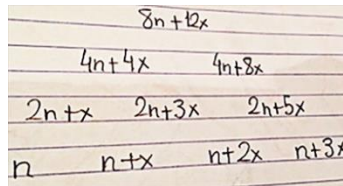 8n+12x
4n+4x 4n+8x
2n+x 2n+3x 2n+5x
n n+x n+2x n+3x